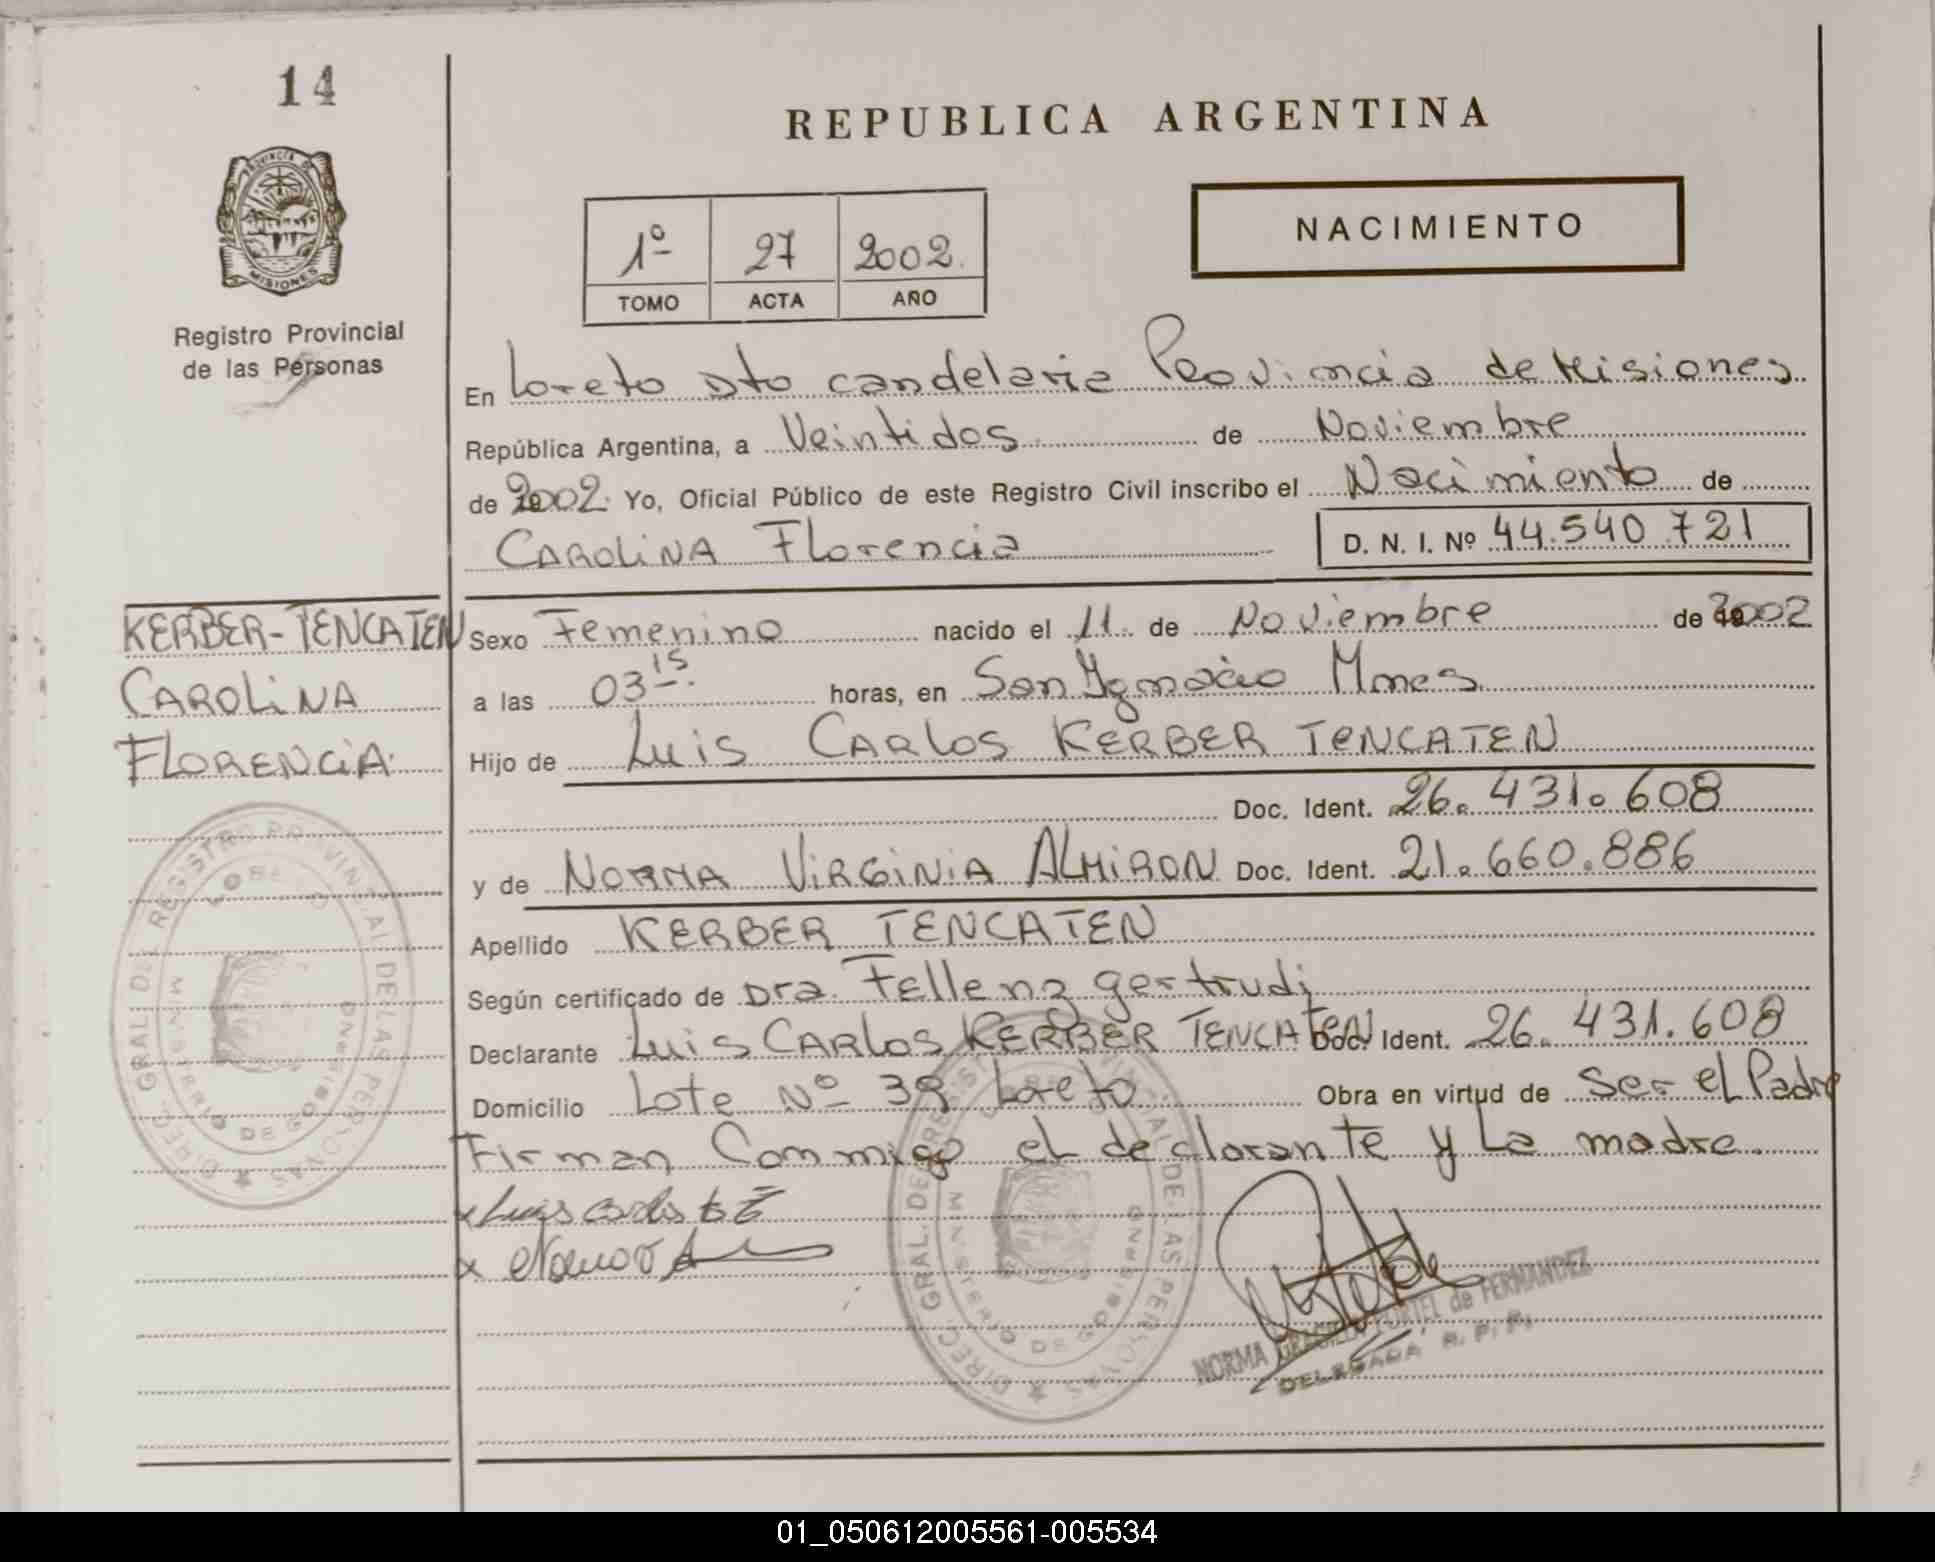 14
REPUBLICA ARGENTINA
PROVINCIA DE
MISIONES
Registro Provincial
de las Personas
NACIMIENTO
1º 27 2002
TOMO ACTA AÑO
En Loreto Dto candelaria Provincia de Misiones
República Argentina, a Veintidos de Noviembre
de 2002. Yo, Oficial Público de este Registro Civil inscribo el Nacimiento de
CAROLINA Florencia D. N. I. Nº 44.540.721
KERBER-TENCATEN
CAROLINA
FLORENCIA.
Sexo Femenino nacido el 11 de Noviembre de 2002
a las 03 15 horas, en San Ygnacio Mnes
Hijo de Luis CARLOS KERBER TENCATEN
Doc. Ident. 26.431.608
y de NORMA VIRGINIA ALMIRON Doc. Ident. 21.660.886
Apellido KERBER TENCATEN
Según certificado de Dra. Fellenz gertrudi
Declarante Luis CARLOS KERBER TENCATEN Doc. Ident. 26.431.608
Domicilio Lote Nº 39 Loreto Obra en virtud de Ser el Padre
Firman Conmigo el declarante y La madre.
x Luis Carlos
x
DIREC. GRAL. DE REGISTRO PROVINCIAL DE LAS PERSONAS
MINISTERIO DE GOBIERNO
DIREC. GRAL. DE REGISTRO PROVINCIAL DE LAS PERSONAS
MINISTERIO DE GOBIERNO
NORMA GRACIELA PORTEL de FERNANDEZ
DELEGADA R. P. P.
01_050612005561-005534